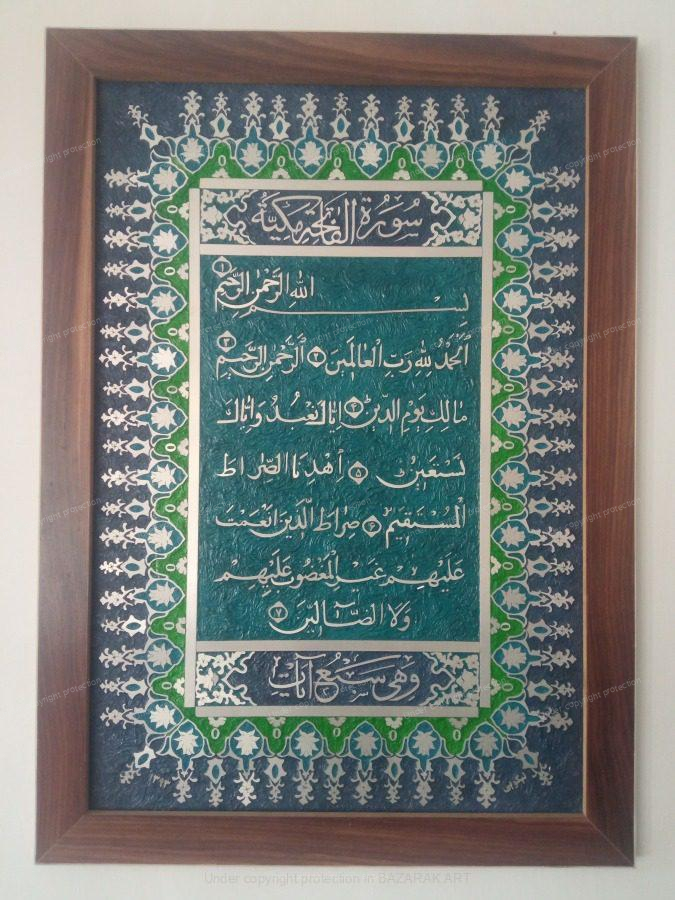 سُورَةُ الْفَاتِحَةِ مَكِّيَّةٌ
بِسْمِ اللهِ الرَّحْمٰنِ الرَّحِيمِ ١
اَلْحَمْدُ لِلّٰهِ رَبِّ الْعَالَمِينَ ٢ اَلرَّحْمٰنِ الرَّحِيمِ ٣
مَالِكِ يَوْمِ الدِّينِ ٤ اِيَّاكَ نَعْبُدُ وَاِيَّاكَ
نَسْتَعِينُ ٥ اِهْدِنَا الصِّرَاطَ
الْمُسْتَقِيمَ ٦ صِرَاطَ الَّذِينَ اَنْعَمْتَ
عَلَيْهِمْ غَيْرِ الْمَغْضُوبِ عَلَيْهِمْ
وَلَا الضَّالِّينَ ٧
وَهِيَ سَبْعُ آيَاتٍ
Under copyright protection in BAZARAK ART